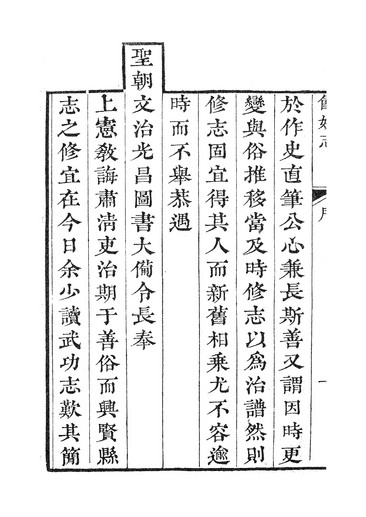 於作史直筆公心兼長斯善又謂因時更
變與俗推移當及時修志以爲治譜然則
修志固宜得其人而新舊相乘尤不容逾
時而不舉恭遇
聖朝文治光昌圖書大備令長奉
上憲敎誨肅淸吏治期于善俗而興賢縣
志之修宜在今日余少讀武功志歎其簡